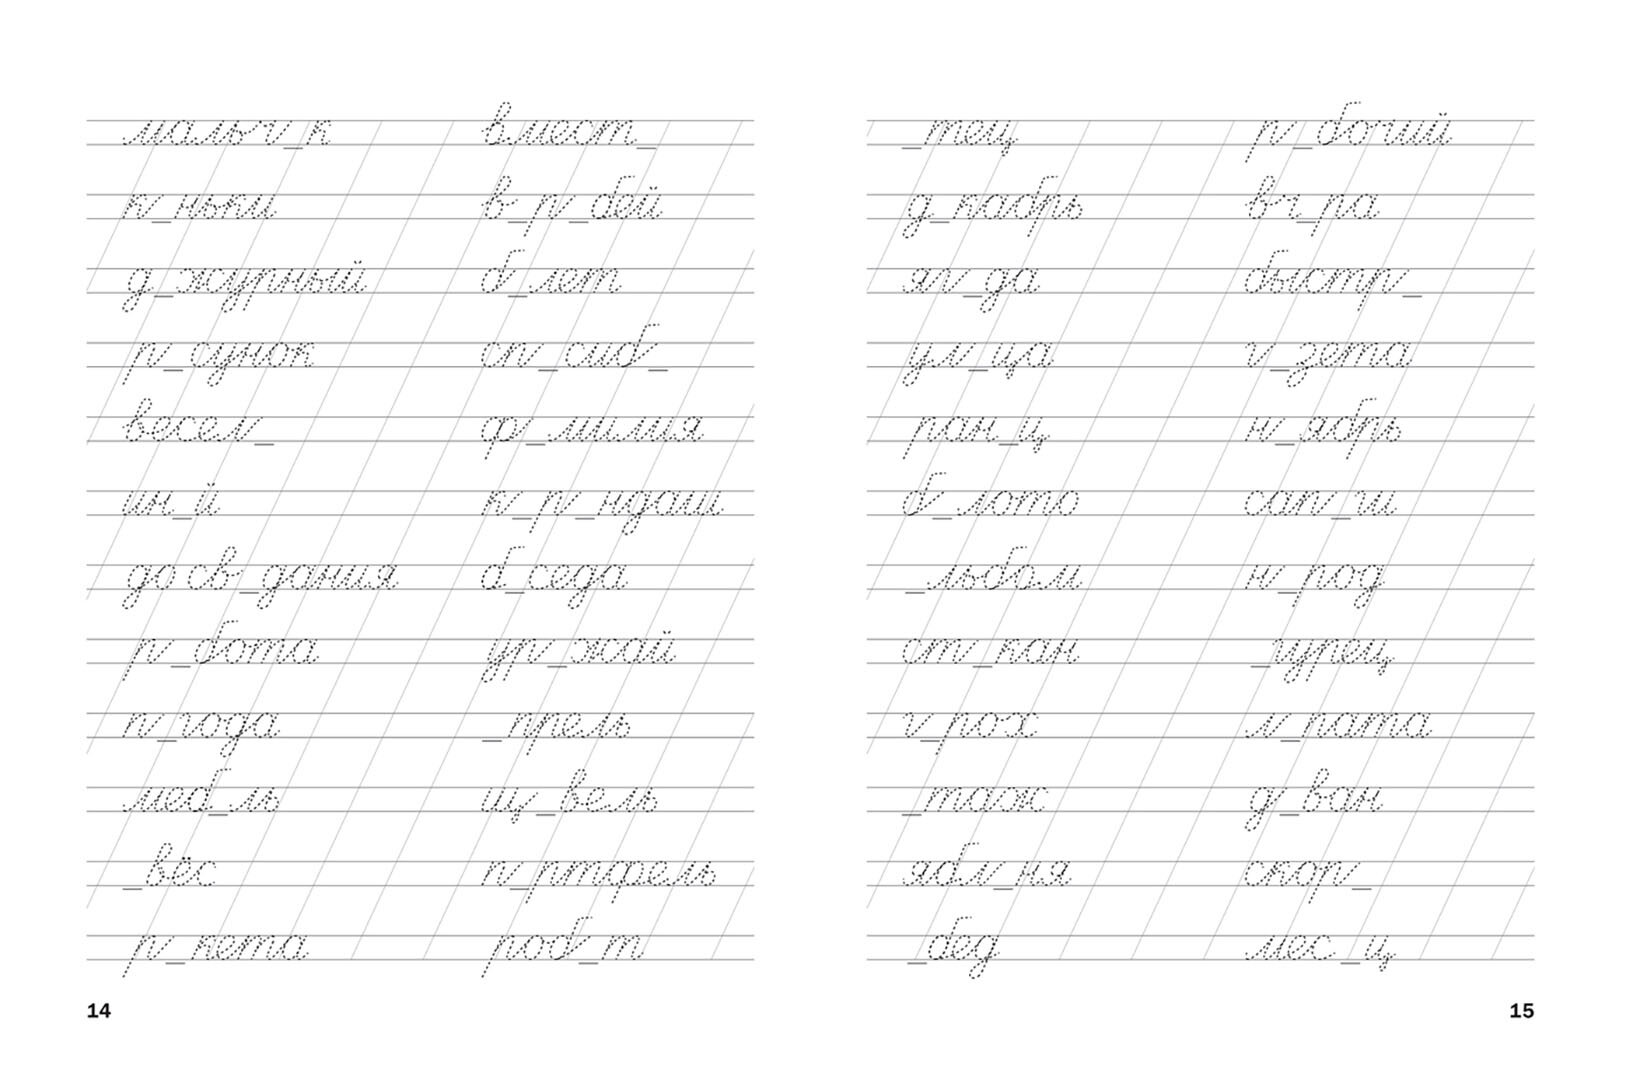 мальч_к вмест_
к_ньки в_р_бей
д_журный б_лет
р_сунок сп_сиб_
весел_ ф_милия
ин_й к_р_ндаш
до св_дания б_седа
р_бота ур_жай
п_года _прель
меб_ль щ_вель
_вёс п_ртфель
р_кета роб_т
14
_тец р_бочий
д_кабрь вч_ра
яг_да быстр_
ул_ца г_зета
ран_ц н_ябрь
б_лото сап_ги
_льбом н_род
ст_кан _гурец
г_рох л_пата
_таж д_ван
ябл_ня скор_
_бед мес_ц
15